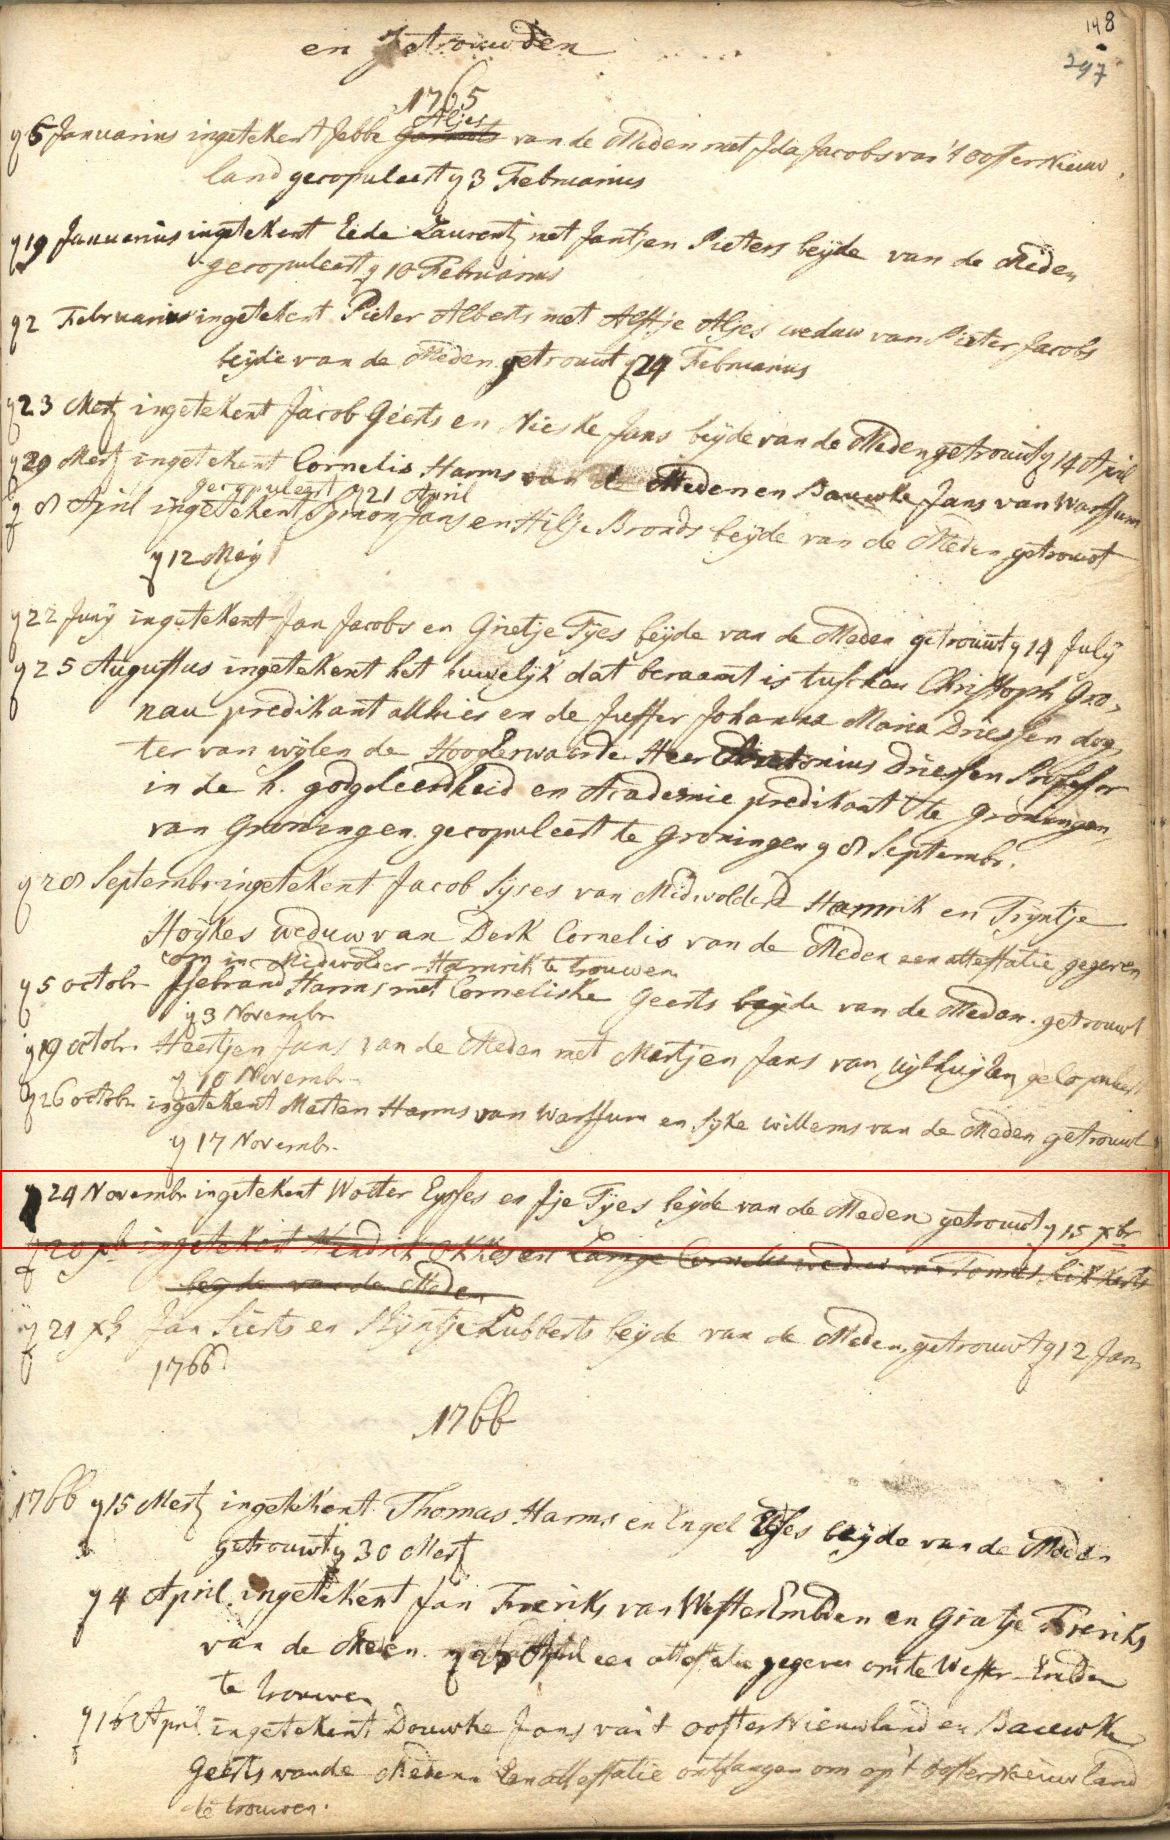 148
297
en getrouwden
1765
Aljes
y 5 Januarius ingetekent Jebbe van de Meden met Ida Jacobs van 't ooster Nieuw
land gecopuleert y 3 Februarius
y 19 Januarius ingetekent Eede Laurentz met Jantjen Pieters beyde van de Meden
gecopuleert y 10 Februarius
y 2 Februarius ingetekent Pieter Alberts met Aljes weduw van Pieter Jacobs
beyde van de Meden getrouwt y 24 Februarius
y 23 Mertz ingetekent Jacob Geerts en Nieske Jans beyde van de Meden getrouwt y 14 April
y 29 Mertz ingetekent Cornelis Harms van de Meden en Bauwke Jans van Warffum
gecopuleert y 21 April
y 8 April ingetekent Symon Jans en Hilje Bronds beyde van de Meden getrouwt
y 12 Mey
y 22 Juny ingetekent Jan Jacobs en Grietje Tyes beyde van de Meden getrouwt y 14 July
y 25 Augustus ingetekent het huwelijk dat beraamt is tusschen Christoph Gro-
nau predikant alhier en de Juffer Johanna Maria Driessen dog
ter van wijlen de Hoogeerwaarde Heer Antonius Driessen Professor
in de h. godgeleerdheid en Academie predikant te groningen,
van Groningen. gecopuleert te Groningen y 8 Septembr.
y 28 Septembr ingetekent Jacob Syses van Midwolder Hamrik en Tryntje
Hoykes weduw van Derk Cornelis van de Meden een attestatie gegeven
om in Midwolder Hamrik te trouwen
y 5 octobr Ysebrand Harms met Corneliske Geerts beyde van de Meden. getrouwt
y 3 Novembr
y 19 octobr. Heertjen Jans van de Meden met Martjen Jans van uythuyzen gecopuleert
y 10 Novembr
y 26 octobr ingetekent Marten Harms van Warffum en Syke willems van de Meden getrouwt
y 17 Novembr.
y 24 Novembr ingetekent Wolter Eppes en Jje Tyes beyde van de Meden getrouwt y 15 xbr
y 20 xb ingetekent Hendrik Okkes en Cornelis weduw van Tonnis
beyde van de Meden
y 21 xb Jan Sierts en Stijntje Lubberts beyde van de Meden, getrouwt y 12 Jan
1766
1766
1766 y 15 Mertz ingetekent Thomas Harms en Engel beyde van de Meden
getrouwt y 30 Mert
y 4 April. ingetekent Jan Freriks van Wester Emden en Grietje Freriks
van de Meden. y April een attestatie gegeven om te Wester Emden
te trouwen
y 16 April ingetekent Douwke Jans van 't ooster Nieuwland en Bauwke
Geerts van de Meden. Een attestatie ontfangen om op 't ooster Nieuwland
te trouwen.